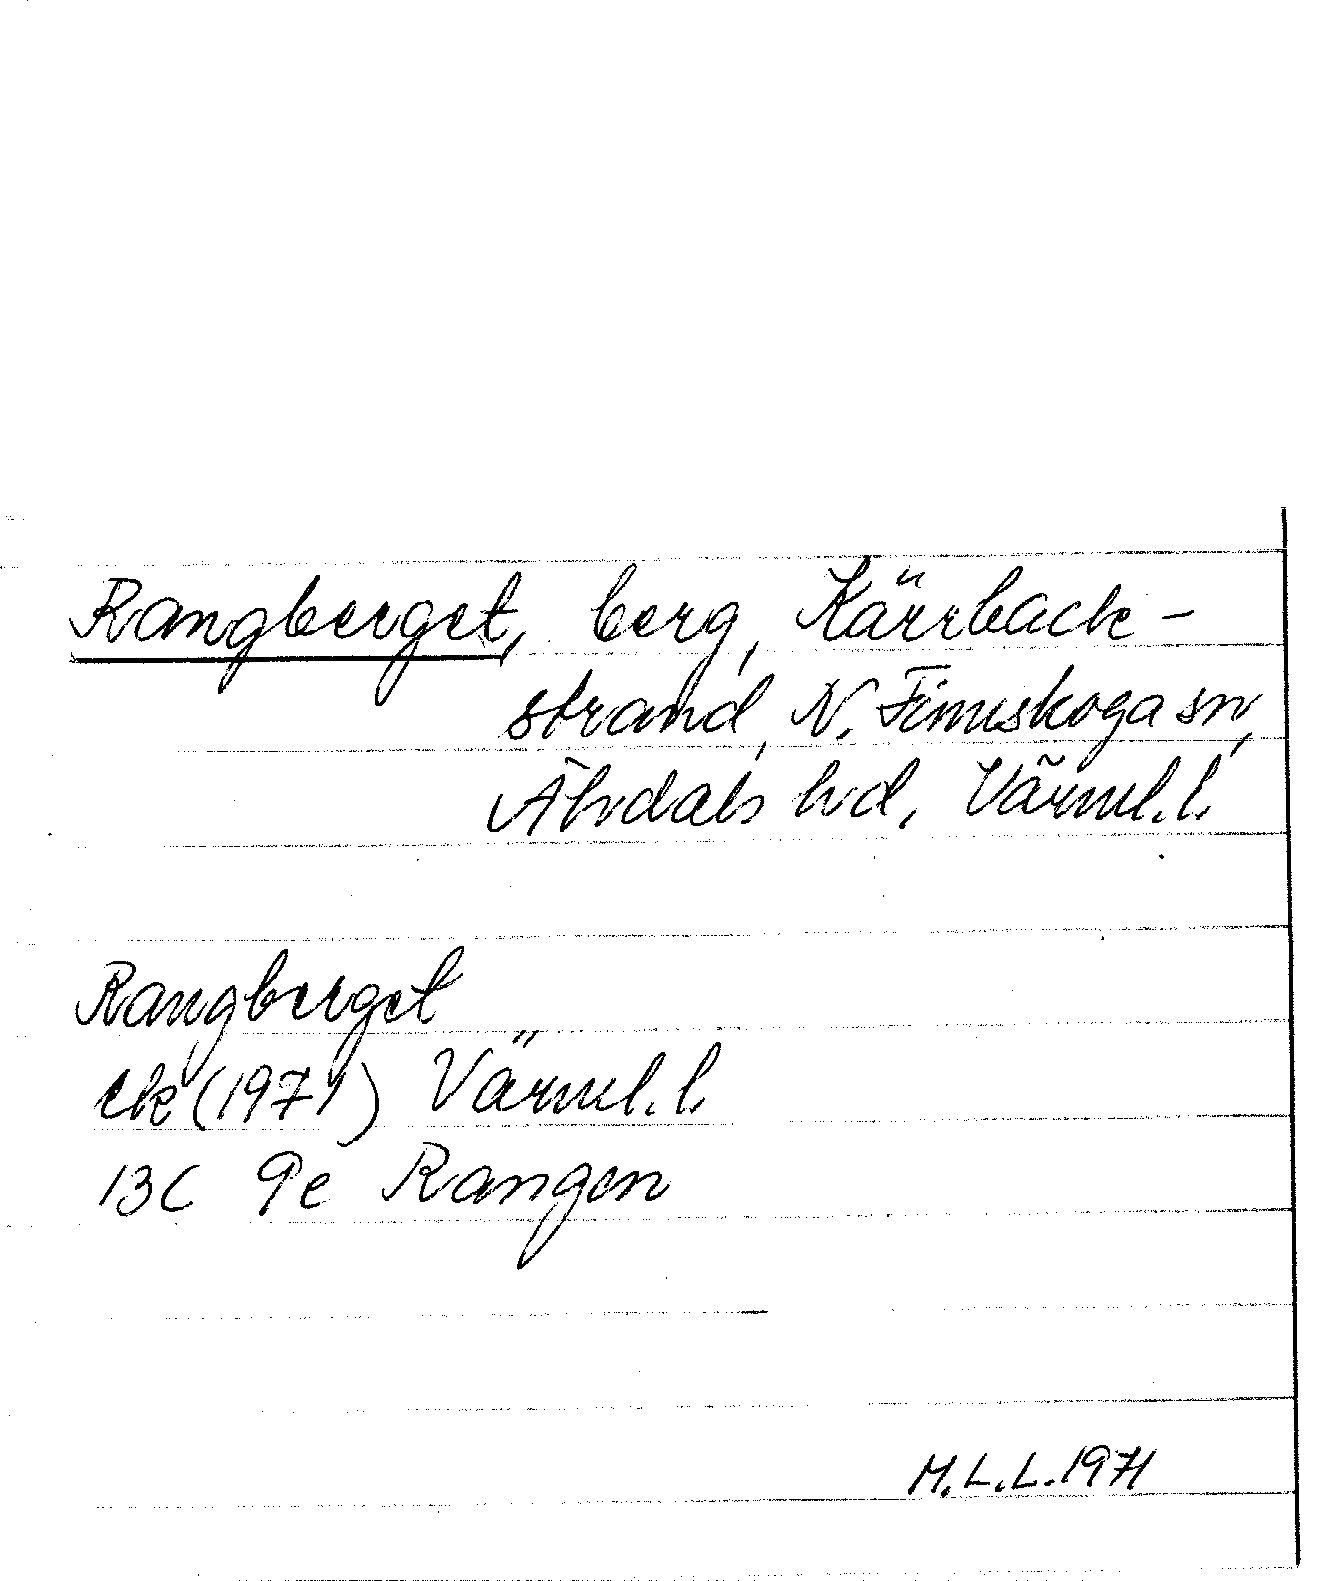 Rangberget, berg, Kärrback-
strand, N. Finnskoga sn,
Älvdals hd, Värml. l.
Rangberget
ek (1971) Värml. l.
13C 9e Rangen
M.L.L. 1971